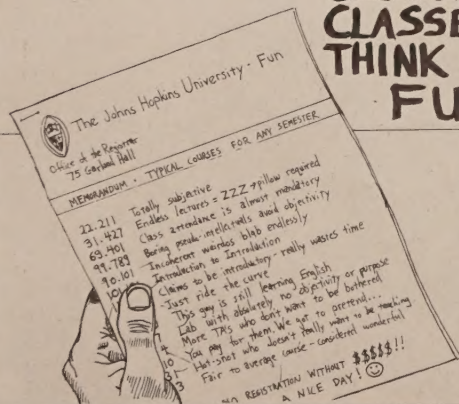 CLASSE
THINK
FU
The Johns Hopkins University - Fun
Office of the Registrar
75 Garland Hall
MEMORANDUM - TYPICAL COURSES FOR ANY SEMESTER
22.211 Totally subjective
31.427 Endless lectures = ZZZ → pillow required
69.401 Class attendance is almost mandatory
99.789 Boring pseudo-intellectuals avoid objectivity
90.101 Incoherent weirdos blab endlessly
10 Introduction to Introduction
Claims to be introductory - really wastes time
Just ride the curve
This guy is still learning English
Lab with absolutely no objectivity or purpose
4 More TAs who don't want to be bothered
10 You pay for them. We got to pretend...
3 Hot-shot who doesn't really want to be teaching
3 Fair to average course - considered wonderful
NO REGISTRATION WITHOUT $$$$$!!
A NICE DAY!